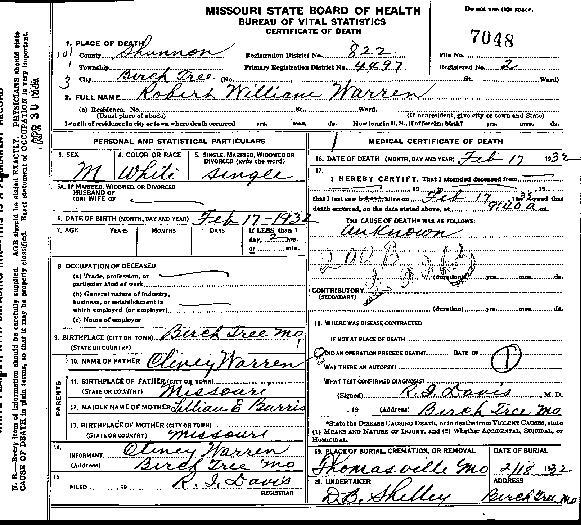 MISSOURI STATE BOARD OF HEALTH
BUREAU OF VITAL STATISTICS
CERTIFICATE OF DEATH
Do not use this space.
7048
1. PLACE OF DEATH
County Shannon
Registration District No. 822
File No.
Township
Primary Registration District No. 4497
Registered No. 2
City Birch Tree (No. St. Ward)
2. FULL NAME Robert William Warren
(a) Residence. No. St. Ward.
(Usual place of abode) (If nonresident, give city or town and State)
Length of residence in city or town where death occurred yrs. mos. ds. How long in U. S., if of foreign birth? yrs. mos. ds.
PERSONAL AND STATISTICAL PARTICULARS
3. SEX
M
4. COLOR OR RACE
White
5. SINGLE, MARRIED, WIDOWED OR DIVORCED (write the word)
single
5A. IF MARRIED, WIDOWED OR DIVORCED
HUSBAND OF
(OR) WIFE OF
6. DATE OF BIRTH (MONTH, DAY AND YEAR) Feb 17-1932
7. AGE YEARS MONTHS DAYS If LESS than 1 day, hrs. or min.
8. OCCUPATION OF DECEASED
(a) Trade, profession, or particular kind of work
(b) General nature of industry, business, or establishment in which employed (or employer)
(c) Name of employer
9. BIRTHPLACE (CITY OR TOWN) Birch Tree Mo
(STATE OR COUNTRY)
PARENTS
10. NAME OF FATHER Cliney Warren
11. BIRTHPLACE OF FATHER (CITY OR TOWN)
(STATE OR COUNTRY) Missouri
12. MAIDEN NAME OF MOTHER Lillian E Burris
13. BIRTHPLACE OF MOTHER (CITY OR TOWN)
(STATE OR COUNTRY) Missouri
14.
INFORMANT Cliney Warren
(Address) Birch Tree Mo
15.
FILED R. I. Davis
REGISTRAR
MEDICAL CERTIFICATE OF DEATH
16. DATE OF DEATH (MONTH, DAY AND YEAR) Feb 17 1932
17.
I HEREBY CERTIFY, That I attended deceased from
that I last saw alive on Feb 17 1932 and that
death occurred, on the date stated above, at
THE CAUSE OF DEATH WAS AS FOLLOWS:
Unknown
200B
(duration) yrs. mos. ds.
CONTRIBUTORY
(SECONDARY)
(duration) yrs. mos. ds.
18. WHERE WAS DISEASE CONTRACTED
IF NOT AT PLACE OF DEATH
DID AN OPERATION PRECEDE DEATH? DATE OF
1
WAS THERE AN AUTOPSY?
WHAT TEST CONFIRMED DIAGNOSIS?
(Signed) R. I. Davis M. D.
, 19 (Address) Birch Tree Mo
*State the DISEASE CAUSING DEATH, or in deaths from VIOLENT CAUSES, state
(1) MEANS AND NATURE OF INJURY, and (2) whether ACCIDENTAL, SUICIDAL, or
HOMICIDAL.
19. PLACE OF BURIAL, CREMATION, OR REMOVAL DATE OF BURIAL
Thomasville Mo 2/18 1932
20. UNDERTAKER ADDRESS
D.B. Shelley Birch Tree Mo